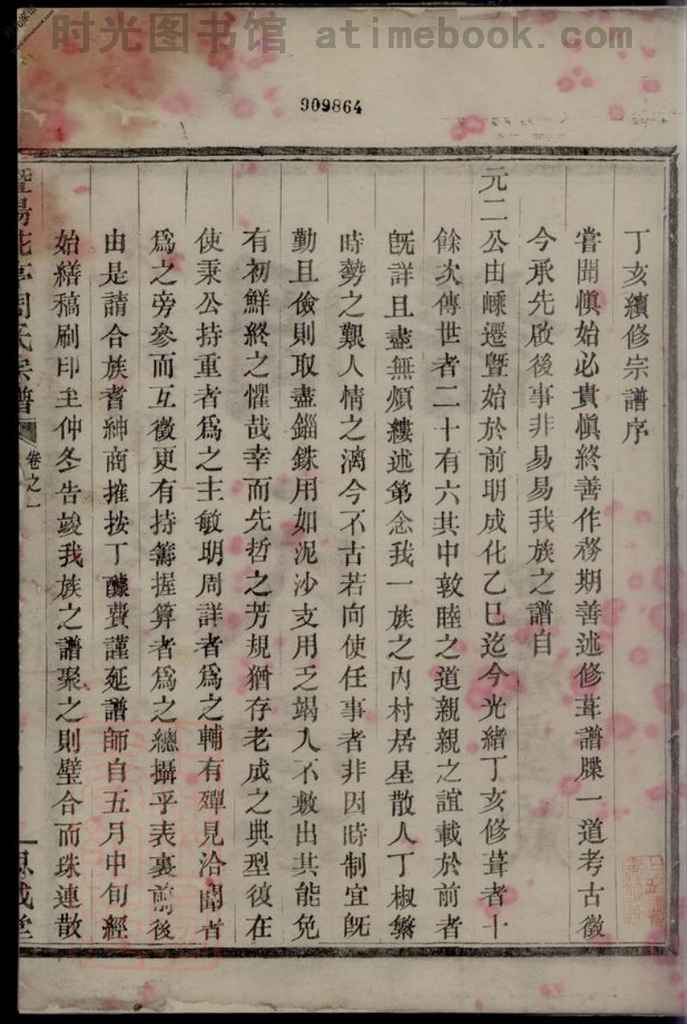 时光图书馆 - atimebook.com
909864
丁亥續修宗譜序
嘗聞愼始必貴愼終善作務期善述修葺譜牒一道考古徵
今承先啟後事非易易我族之譜自
元二公由嵊遷暨始於前明成化乙巳迄今光緒丁亥修葺者十
餘次傳世者二十有六其中敦睦之道親親之誼載於前者
旣詳且盡無煩縷述第念我一族之內村居星散人丁椒繁
時勢之艱人情之漓今不古若向使任事者非因時制宜旣
勤且儉則取盡錙銖用如泥沙支用乏竭入不敷出其能免
有初鮮終之懼哉幸而先哲之芳規猶存老成之典型復在
使秉公持重者爲之主敏明周詳者爲之輔有殫見洽聞者
爲之旁參而互徵更有持籌握算者爲之總攝乎表裏前後
由是請合族耆紳商搉按丁醵費謹延譜師自五月中旬經
始繕稿刷印至仲冬告竣我族之譜聚之則璧合而珠連散
暨陽花亭周氏宗譜 卷之一